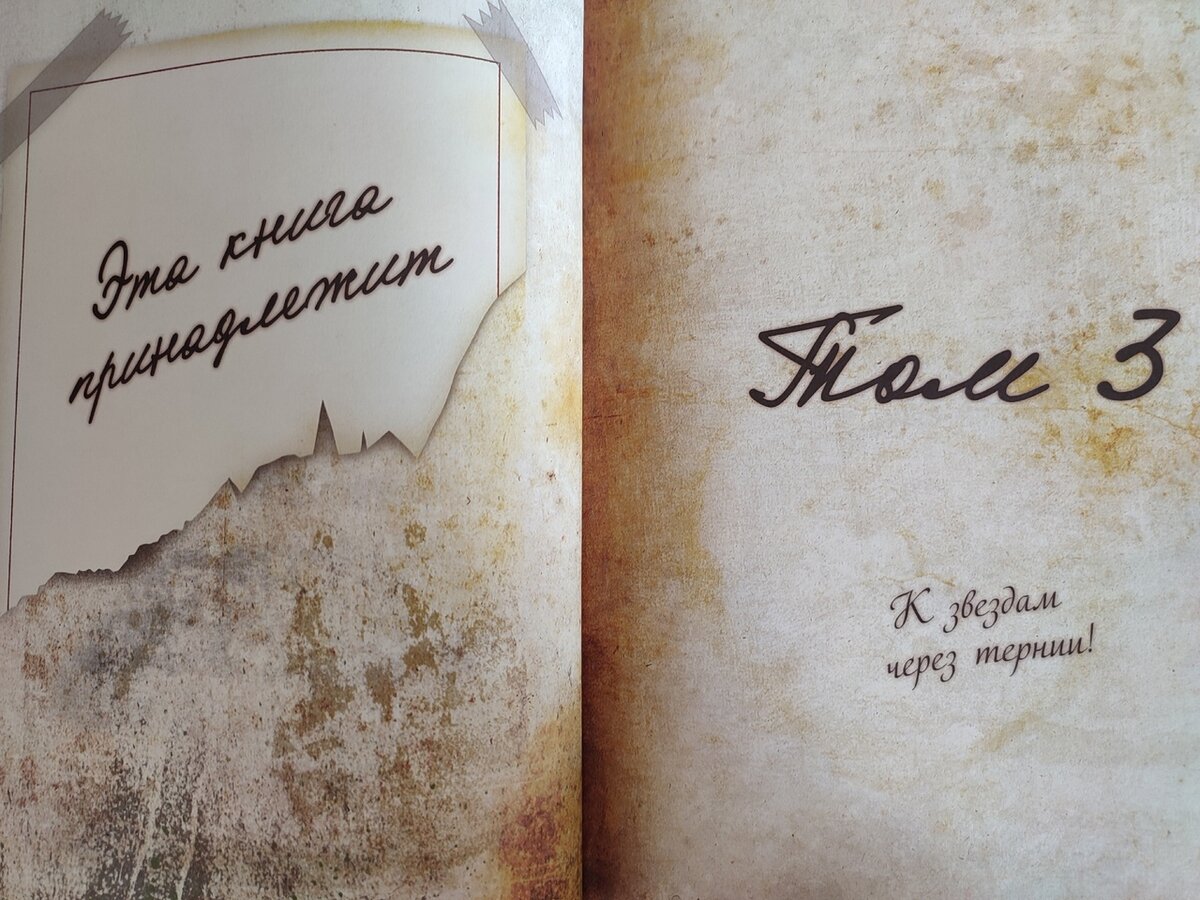 Эта книга
принадлежит
Том 3
К звездам
через тернии!